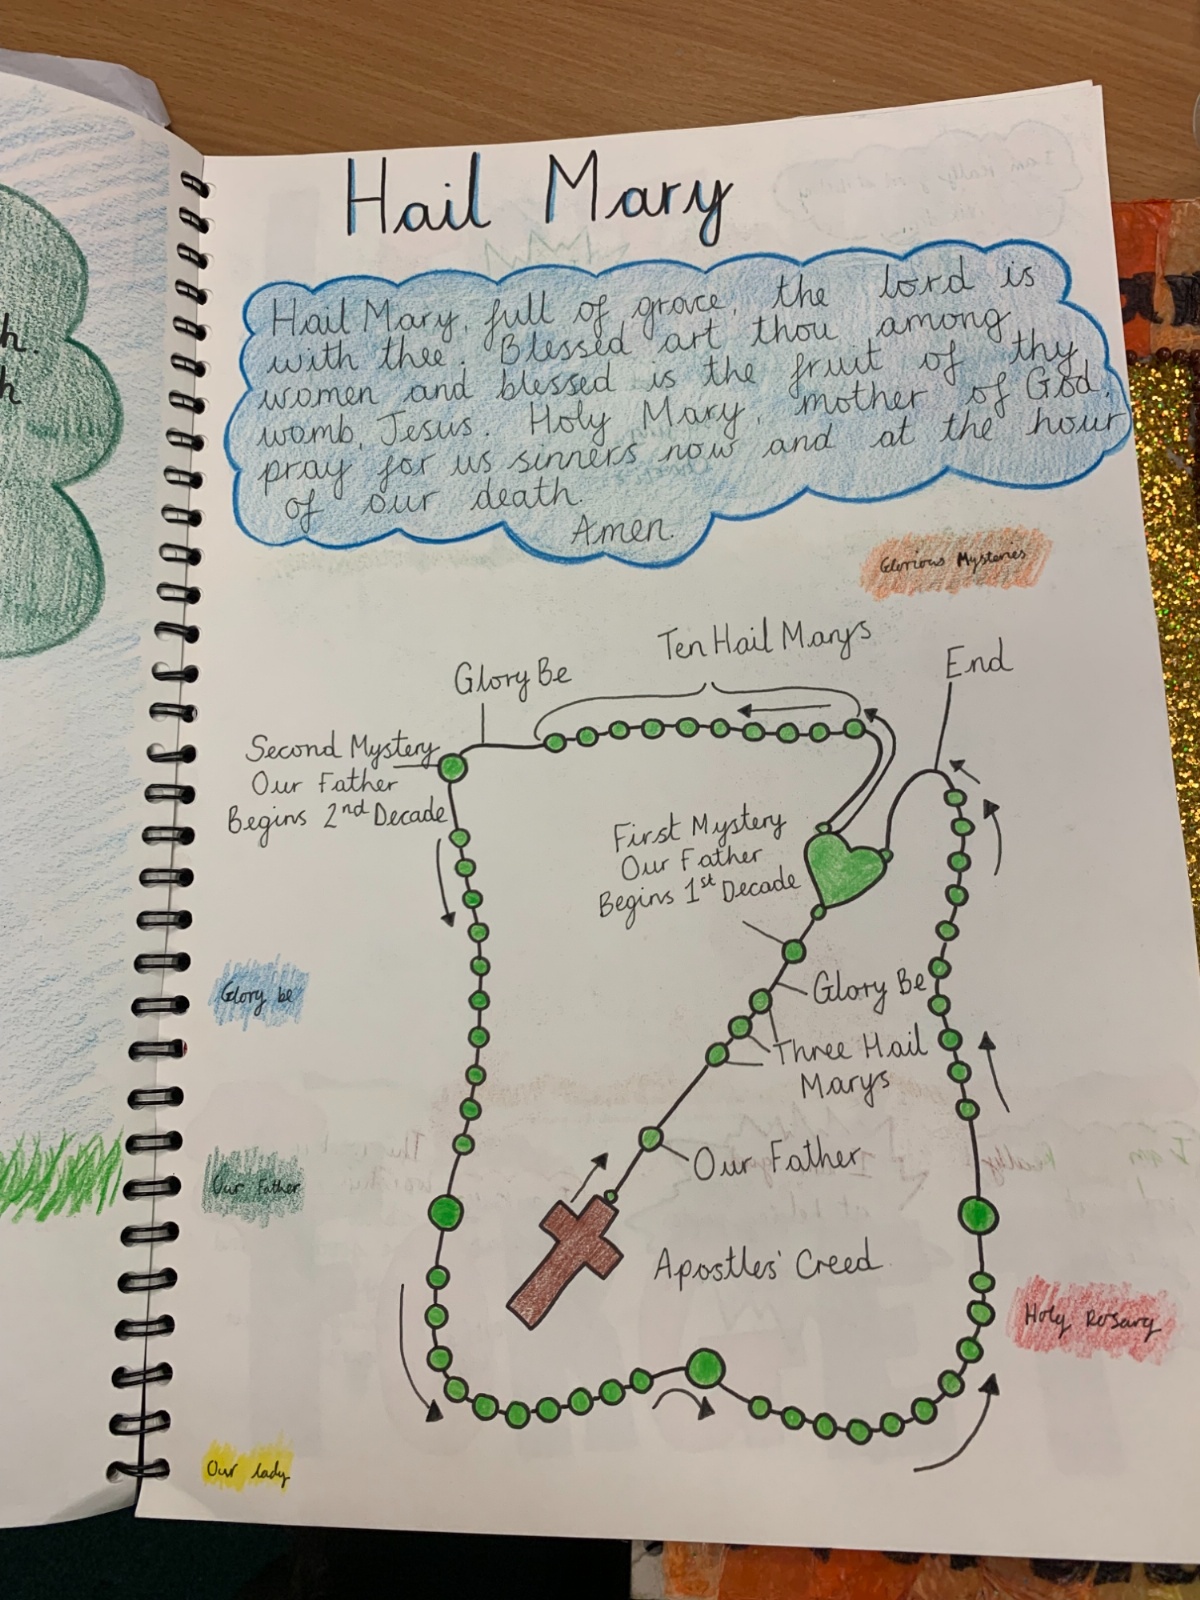 Hail Mary
Hail Mary, full of grace, the lord is
with thee. Blessed art thou among
women and blessed is the fruit of thy
womb, Jesus. Holy Mary, mother of God,
pray for us sinners now and at the hour
of our death.
Amen.
Glorious Mysteries
Ten Hail Marys
Glory Be
End
Second Mystery
Our Father
Begins 2nd Decade
First Mystery
Our Father
Begins 1st Decade
Glory Be
Glory be
Three Hail
Marys
Our Father
Our Father
Apostles' Creed
Holy Rosary
Our lady
h.
h